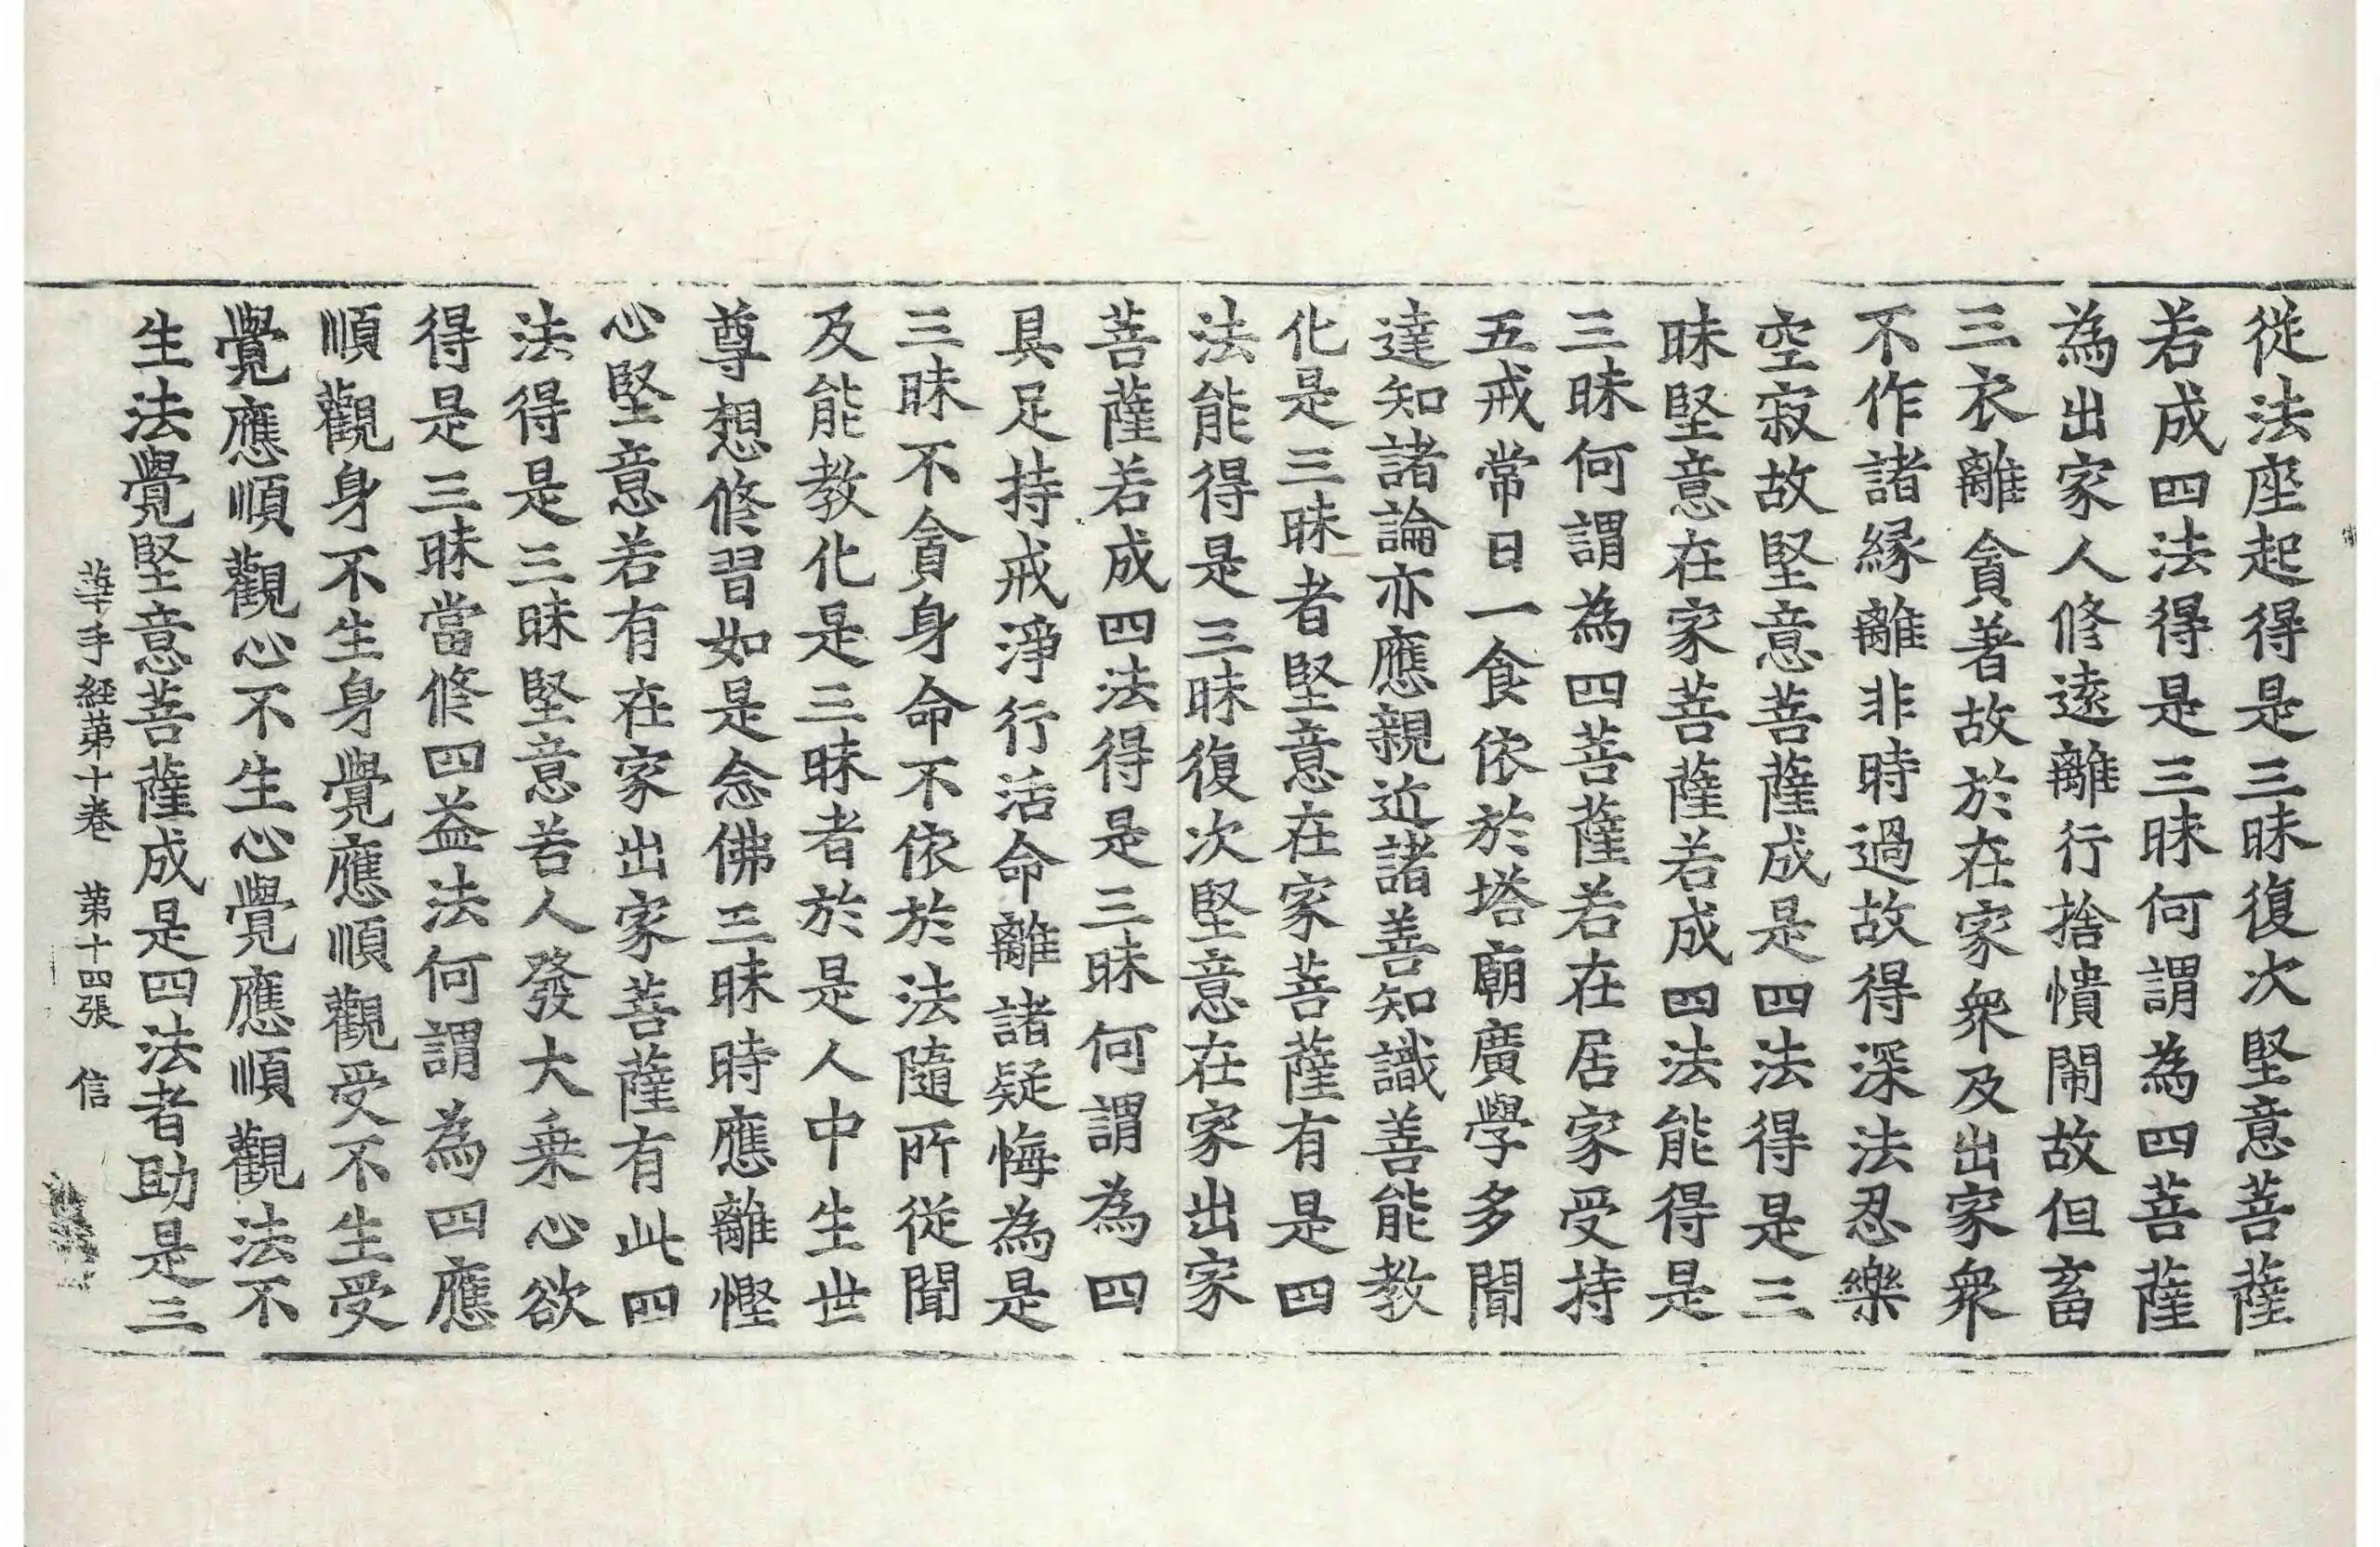 從法座起得是三昧復次堅意菩薩
若成四法得是三昧何謂為四菩薩
為出家人修遠離行捨憒閙故但畜
三衣離貪著故於在家衆及出家衆
不作諸緣離非時過故得深法忍樂
空寂故堅意菩薩成是四法得是三
昧堅意在家菩薩若成四法能得是
三昧何謂為四菩薩若在居家受持
五戒常日一食依於塔廟廣學多聞
達知諸論亦應親近諸善知識善能教
化是三昧者堅意在家菩薩有是四
法能得是三昧復次堅意在家出家
菩薩若成四法得是三昧何謂為四
具足持戒淨行活命離諸疑悔為是
三昧不貪身命不依於法隨所從聞
及能教化是三昧者於是人中生世
尊想修習如是念佛三昧時應離慳
心堅意若有在家出家菩薩有此四
法得是三昧堅意若人發大乗心欲
得是三昧當修四益法何謂為四應
順觀身不生身覺應順觀受不生受
覺應順觀心不生心覺應順觀法不
生法覺堅意菩薩成是四法者助是三
華手經第十卷 第十四張 信